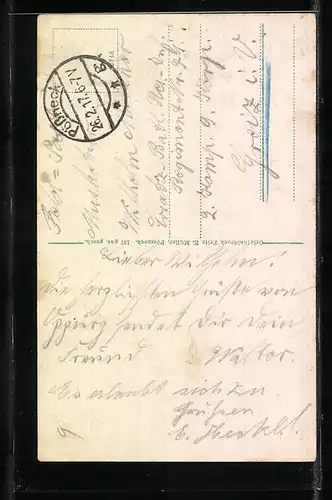 Pößneck
26.2.17.6-7V
Feld-
Musketier
Wilhelm
Ersatz-Batl. Res.-Inf.
Regiment Nr.
2. Komp. 9. Korp.
Greiz i. V.
Originaldruck Fritz E. Müller, Pössneck. ist ges. gesch.
Lieber Wilhelm!
Die herzlichsten Grüße von
Oppurg sendet Dir Dein
Freund Walter.
Es erlaubt sich zu
Grüssen
E.